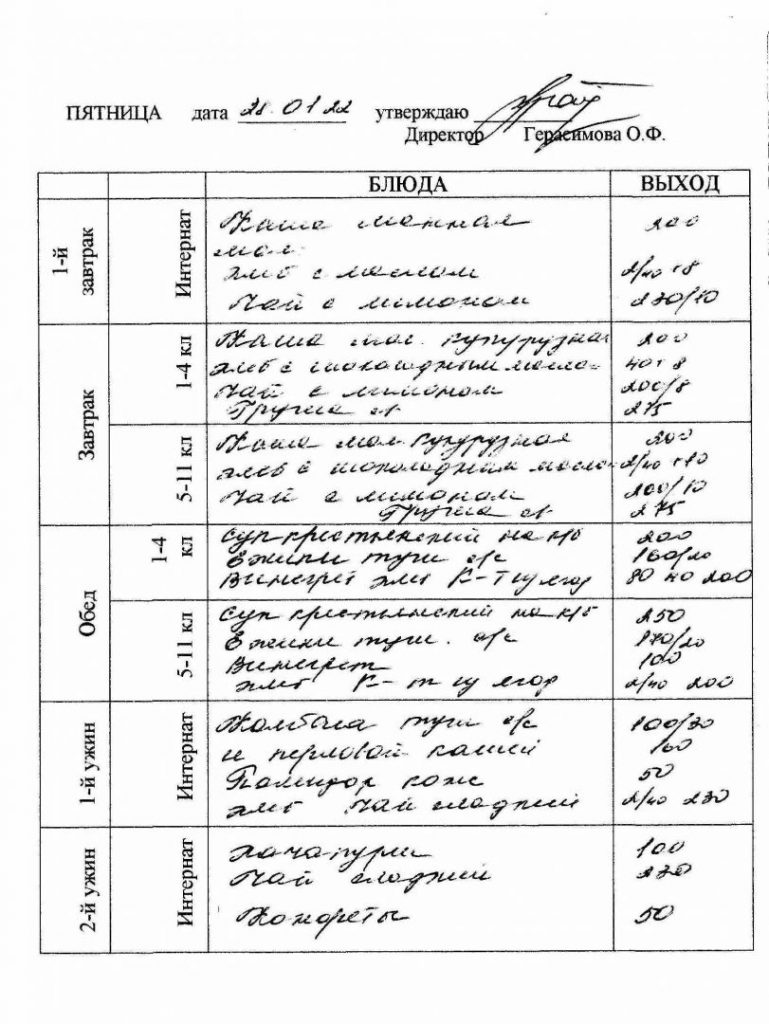 ПЯТНИЦА дата 28.01.22 утверждаю
Директор Герасимова О.Ф.
БЛЮДА ВЫХОД
1-й завтрак
Интернат
Каша манная 200
мол.
Хлеб с маслом 2/40 +8
Чай с лимоном 230/10
Завтрак
1-4 кл
Каша мол. кукурузная 200
Хлеб с шоколадным масло 40+8
Чай с лимоном 200/8
Груша св. 275
5-11 кл
Каша мол. кукурузная 200
Хлеб с шоколадным масло 2/40 +10
Чай с лимоном 200/10
Груша св. 275
Обед
1-4 кл
Суп крестьянский на к/б 200
Ежики туш. с/с 160/20
Винегрет хлеб К-т из ягод 80 40 200
5-11 кл
Суп крестьянский на к/б 250
Ежики туш. с/с 170/20
Винегрет 100
Хлеб К-т из ягод 2/40 200
1-й ужин
Интернат
Колбаса туш с/с 100/30
и перловой кашей 160
Помидор конс 50
Хлеб Чай сладкий 2/40 230
2-й ужин
Интернат
Хачапури 100
Чай сладкий 230
Конфеты 50